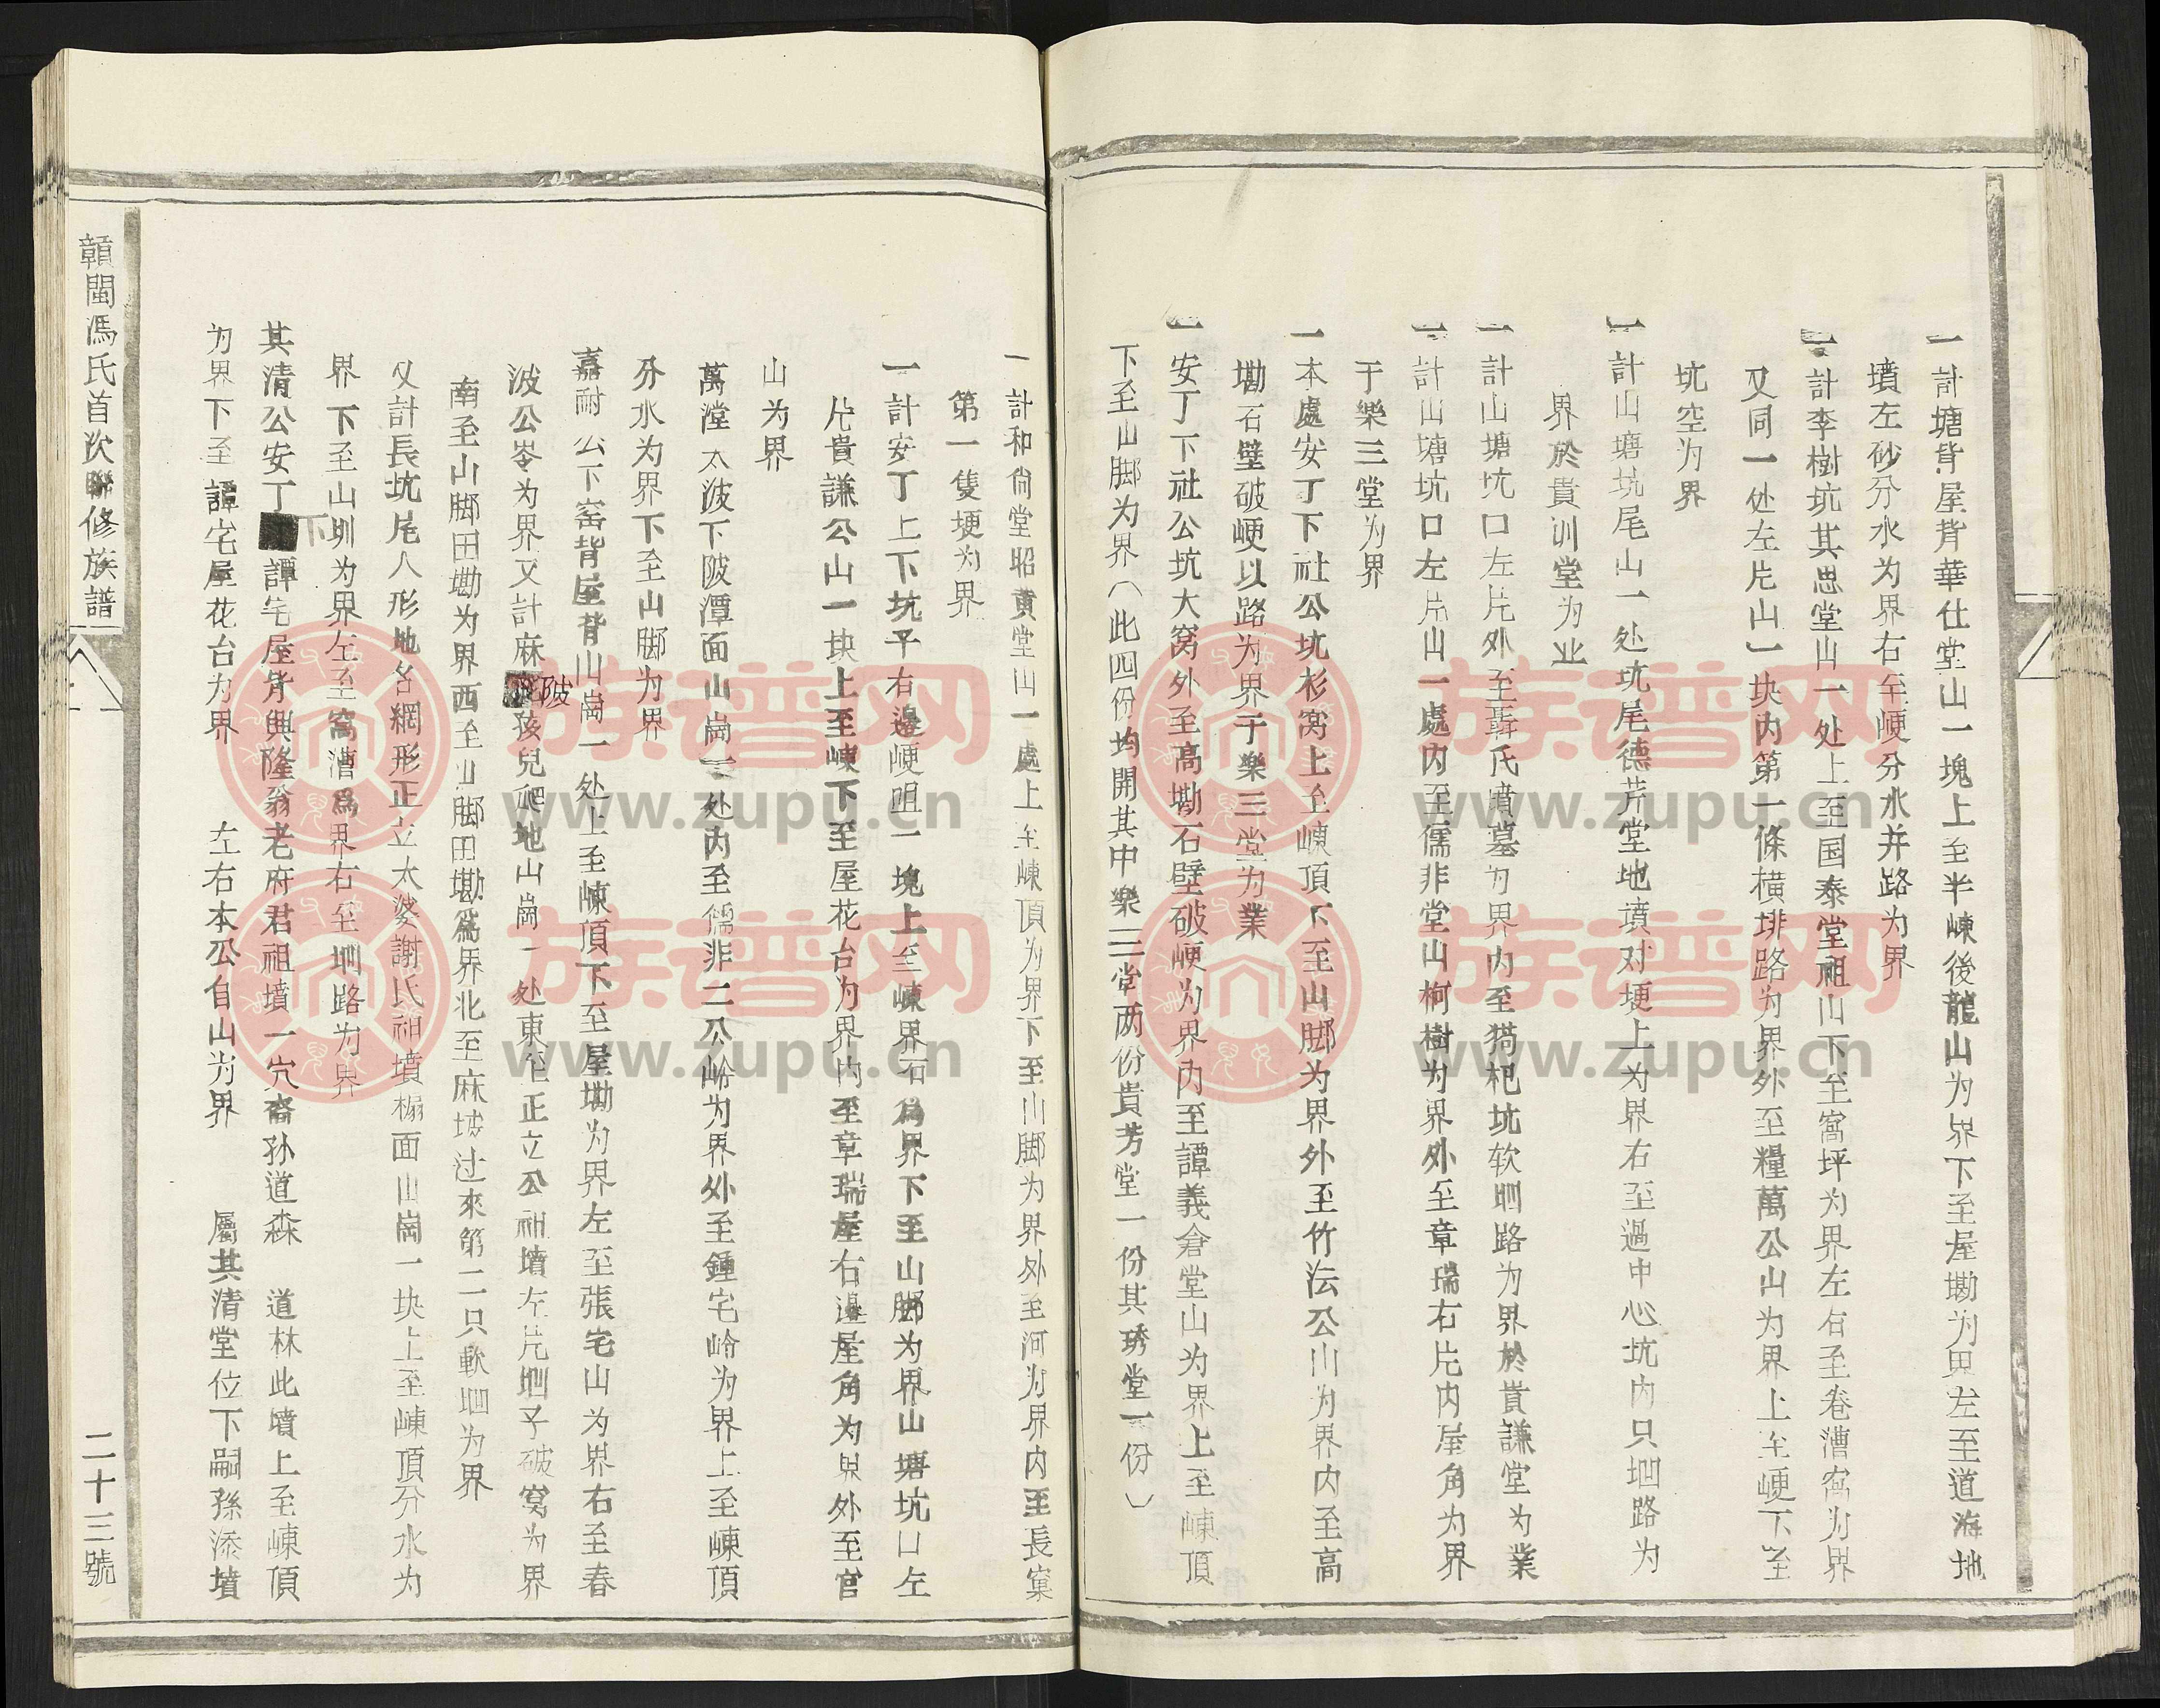 一計塘背屋背華仕堂山一塊上至半崠後龍山为界下至屋墈为界左至道海地
墳左砂分水为界右至㟂分水并路为界
一計李樹坑其思堂山一处上至国泰堂祖山下至窩坪为界左右至卷漕窩为界
又同一处左片山一块内第一條橫排路为界外至糧萬公山为界上至㟂下至
坑空为界
一計山塘坑尾山一处坑尾德芹堂地墳对埂上为界右至過中心坑内只㘭路为
界於貴训堂为业
一計山塘坑口左片外至聶氏墳墓为界内至狗杷坑软㘭路为界於貴謙堂为業
一計山塘坑口左片山一處内至儒非堂山柯樹为界外至章瑞右片内屋角为界
于樂三堂为界
一本處安丁下社公坑杉窝上至崠頂下至山脚为界外至竹沄公山为界内至高
墈石壁破㟂以路为界于樂三堂为業
一安丁下社公坑大窝外至高墈石壁破㟂为界内至譚義倉堂山为界上至崠頂
下至山脚为界（此四份均開其中樂三堂两份貴芳堂一份其琇堂一份）
一計和尙堂昭黄堂山一處上至崠頂为界下至山脚为界外至河为界内至長窠
第一隻埂为界
一計安丁上下坑子右邊㟂咀一塊上至崠界石爲界下至山脚为界山塘坑口左
片貴謙公山一块上至崠下至屋花台为界内至章瑞屋右邊屋角为界外至官
山为界
萬漟太波下陂潭面山崗一处内至儒非二公崯为界外至鍾宅崯为界上至崠頂
分水为界下至山脚为界
嘉耐公下窑背屋背山崗一处上至崠頂下至屋墈为界左至張宅山为界右至春
波公岺为界又計麻陂孩兒爬地山崗一处東至正立公祖墳左片㘭子破窝为界
南至山脚田墈为界西至山脚田墈爲界北至麻坡过來第二只軟㘭为界
又計長坑尾人形地名網形正立太婆謝氏祖墳榻面山崗一块上至崠頂分水为
界下至山圳为界左至窩漕爲界右至圳路为界
其清公安丁下譚宅屋背興隆翁老府君祖墳一穴裔孙道森 道林此墳上至崠頂
为界下至譚宅屋花台为界 左右本公自山为界 屬其清堂位下嗣孫添墳
贛閩馮氏首次聯修族譜
二十三號
族谱网
www.zupu.cn
族谱网
www.zupu.cn
族谱网
www.zupu.cn
族谱网
www.zupu.cn